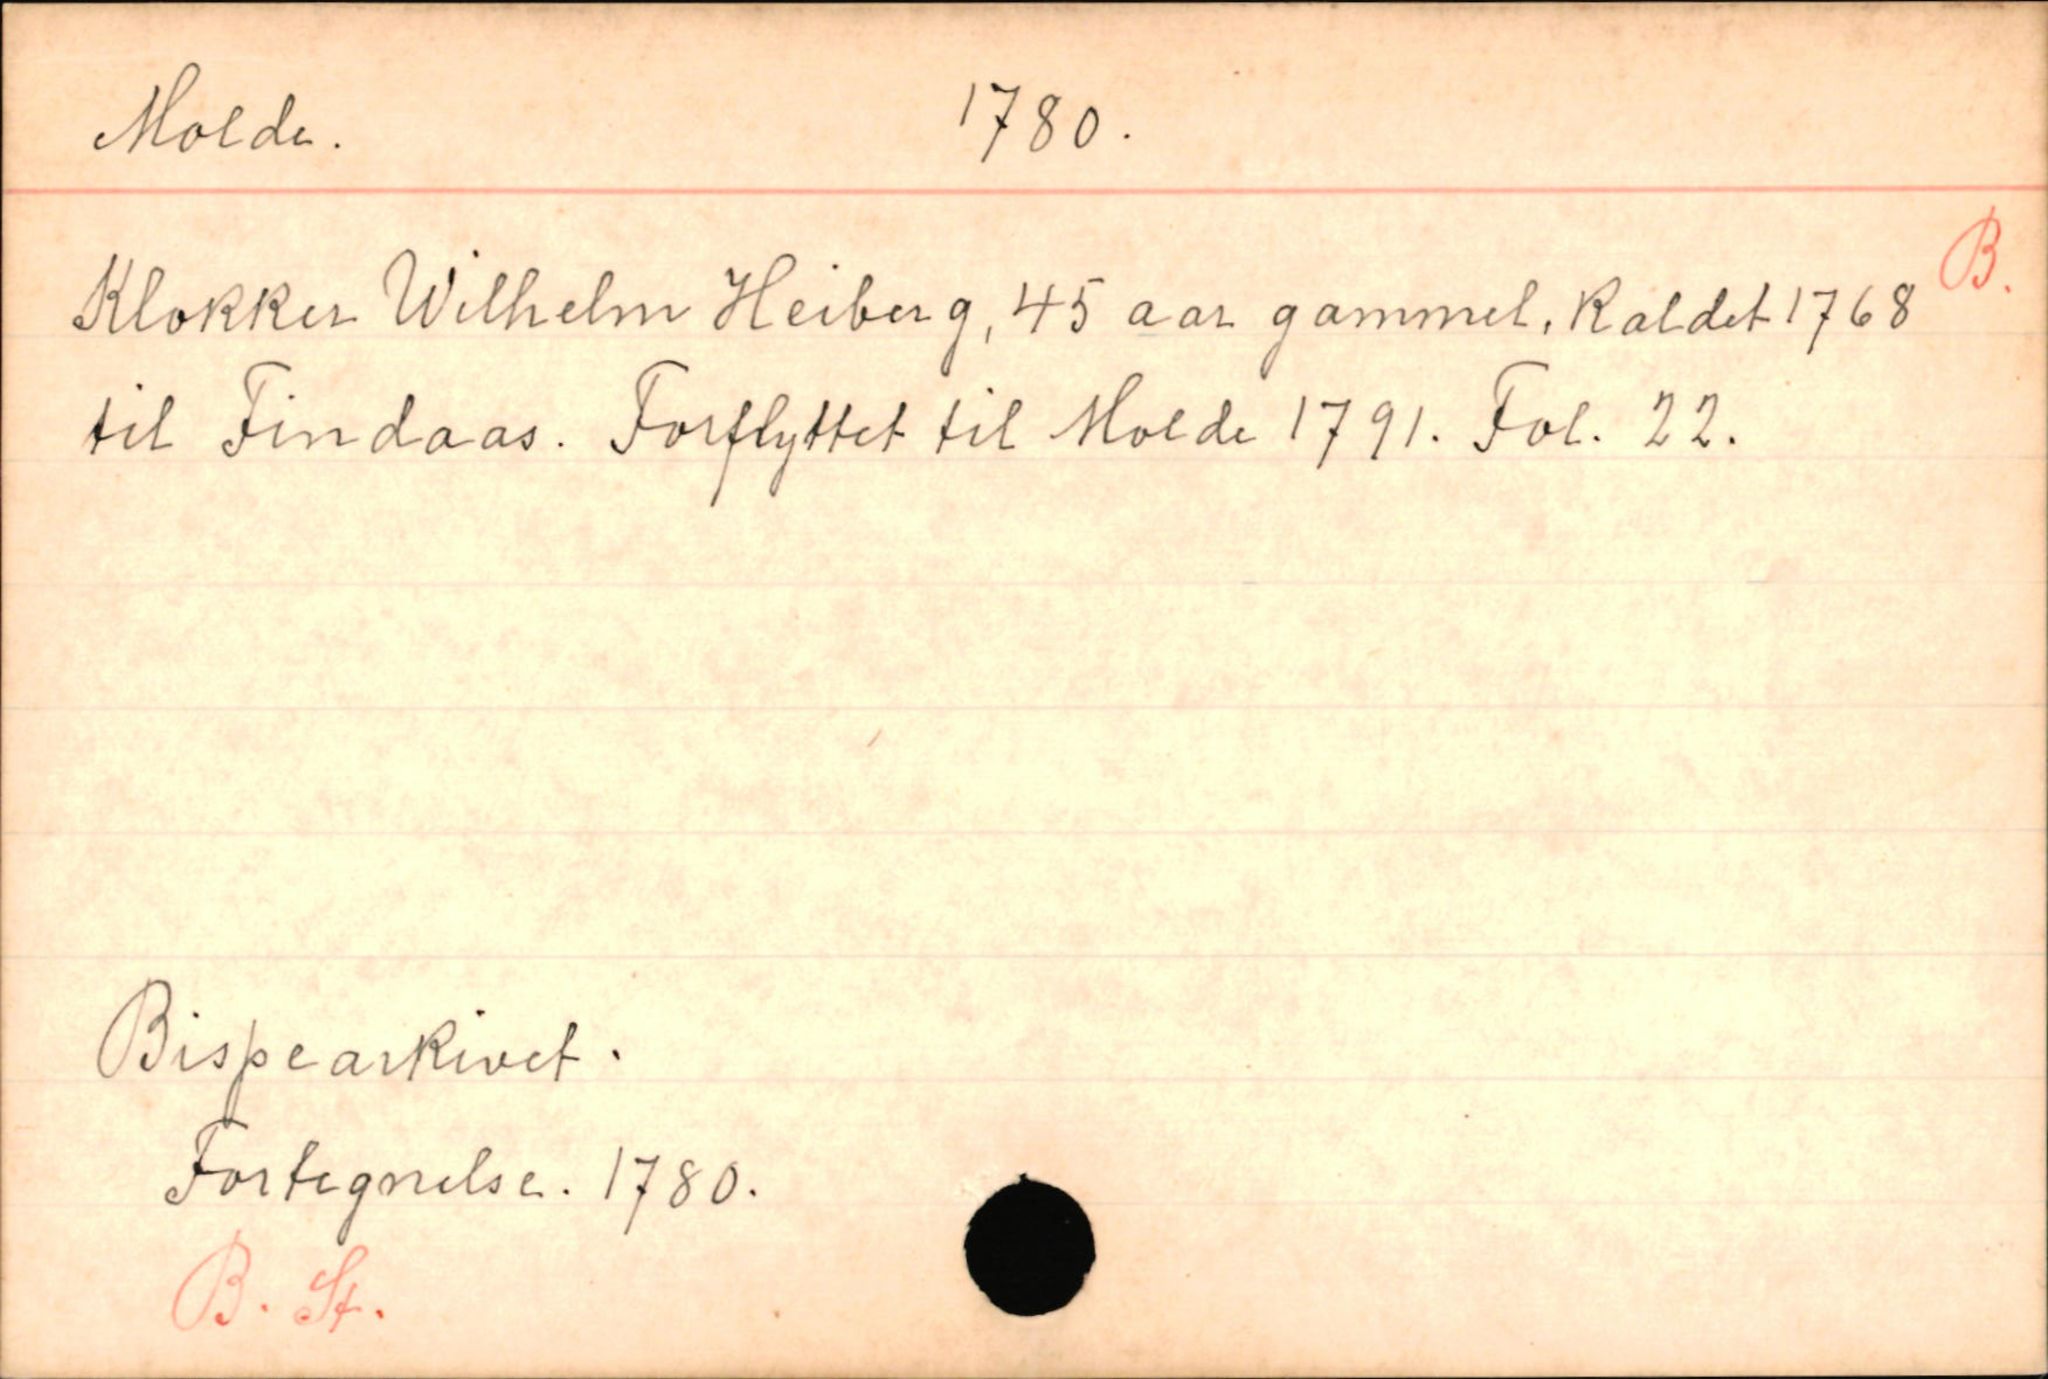 Molde. 1780.
B.
Klokker Wilhelm Heiberg, 45 aar gammel, Kaldet 1768
til Findaas. Forflyttet til Molde 1791. Fol. 22.
Bispearkivet.
Fortegnelse. 1780.
B. St.